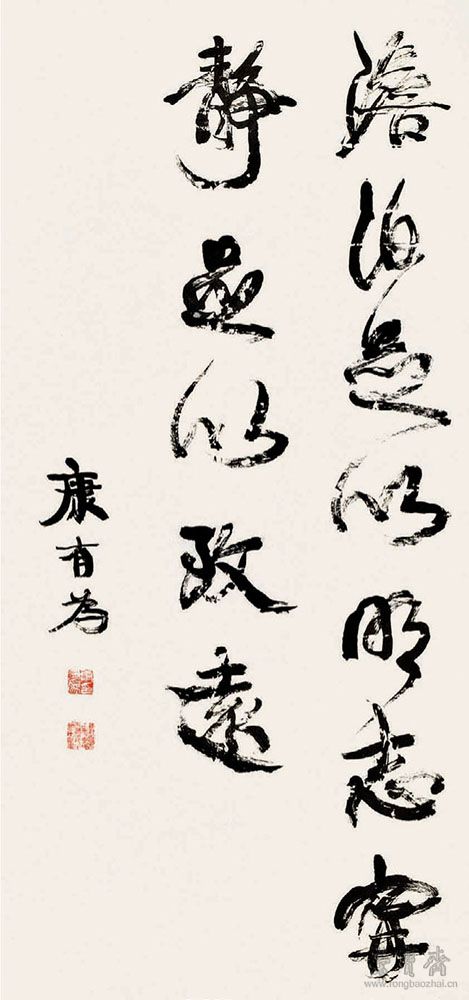 澹泊足以明志寧
靜足以致遠
康有為
荣寶齋
www.rongbaozhai.cn